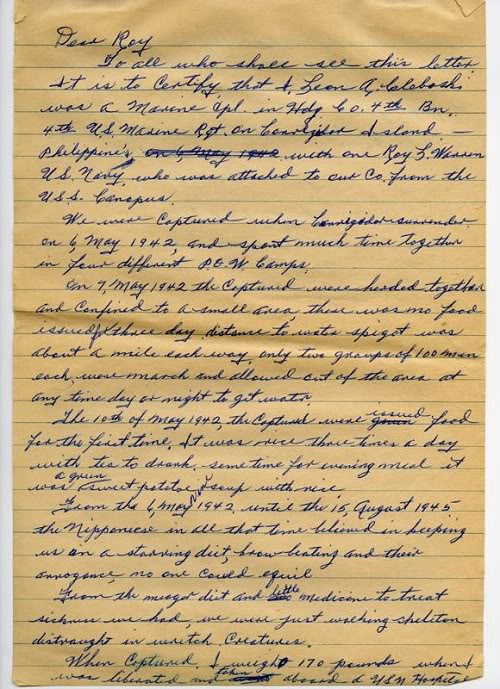 Dear Roy
To all who shall see this letter
It is to Certify, that I, Leon A. Chlebosh
was a Marine Cpl. in Hdq Co. 4th Bn.
4th U.S. Marine Rgt. on Corregidor Island –
Philippine's on 6, May 1942 with one Roy L. Warren
U.S. Navy, who was attached to our Co. from the
U.S.S. Canopus.
We were Captured when Corregidor surrender
on 6, May 1942, and spent much time together
in four different P.O.W. Camps.
On 7, May 1942 the Captured were herded together
and confined to a small area, there was no food
issued for three day, distance to water spigot was
about a mile each way, only two groups of 100 men
each, were march and allowed out of the area at
any time day or night to git water.
The 10th of May 1942, the Capture were given issued food
for the first time. It was rice three times a day
with tea to drank. some time for evening meal it
was a green sweet potatoe soup with rice.
From the 6, May 1942, until the 15, August 1945
the Nipponiese in all that time believed in keeping
us on a starving diet, brow beating and their
arrogance, no one could equil
From the meager diet and little medicine to treat
sickness we had, we were just walking skeleton
distraught in wretch Creatures.
When Captured, I weight 170 pounds when I
was liberated and taken aboard a U.S.N Hospital